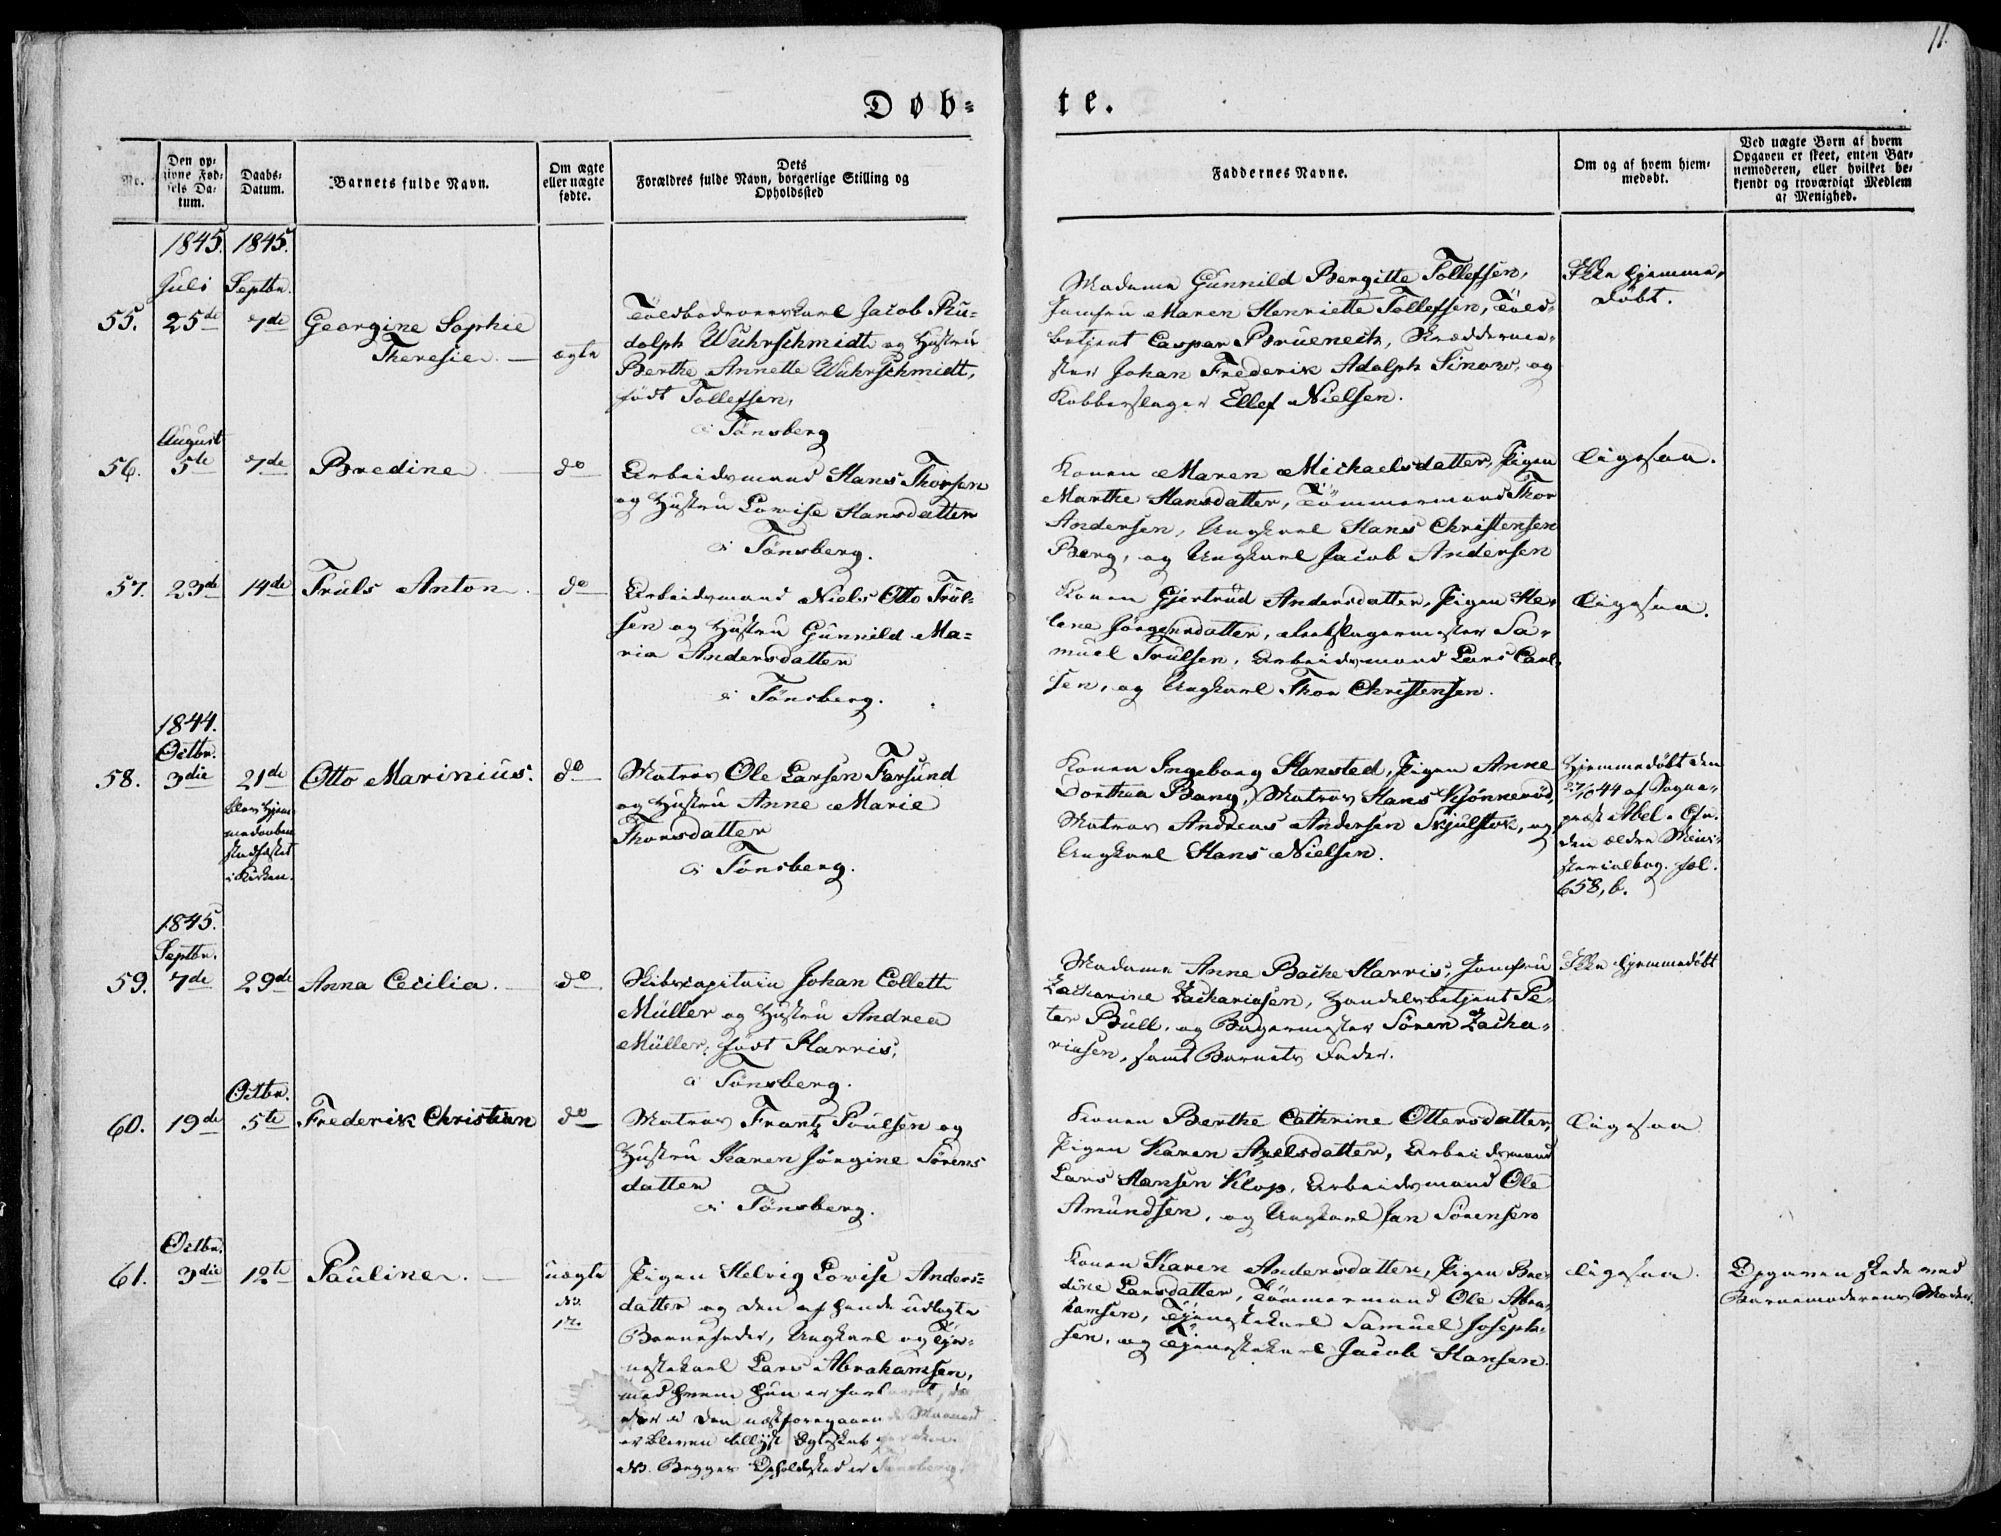 11.
Døb-
te.
No.
Den op-
givne Fød-
sels Da-
tum.
Daabs-
Datum.
Barnets fulde Navn.
Om ægte
eller uægte
fødte.
Dets
Forældres fulde Navn, borgerlige Stilling og
Opholdssted
Faddernes Navne.
Om og af hvem hjem-
medøbt.
Ved uægte Børn af hvem
Opgaven er skeet, enten Bar-
nemoderen, eller hvilket be-
kjendt og troværdigt Medlem
af Menighed.
1845. 1845.
Juli Septbr.
55. 25de 7de Georgine Sophie
Theresie. ægte
Toldbodroerskarl Jacob Ru-
dolph Wuhrschmidt og Hustru
Berthe Annette Wuhrschmidt,
født Tollefsen,
i Tønsberg
Madame Gunnild Bergitte Tollefsen,
Jomfru Maren Henriette Tollefsen, Told-
betjent Caspar Brueneck, Skrædderme-
ster Johan Frederik Adolph Sinow, og
Kobberslager Ellef Nielsen.
Ikke hjemme-
døbt.
August
56. 5te 7de Bredine. do
Arbeidsmand Hans Thorsen
og Hustru Lovise Hansdatter
i Tønsberg.
Konen Maren Michaelsdatter, Pigen
Marthe Hansdatter, Tömmermand Thor
Andersen, Ungkarl Hans Christensen
Berg, og Ungkarl Jacob Andersen
Ligesaa.
57. 23de 14de Truls Anton. do
Arbeidsmand Niels Otto Trul-
sen og Hustru Gunnild Ma-
ria Andersdatter
i Tønsberg.
Konen Gjertrud Andersdatter, Pigen He-
lene Jörgensdatter, Rebslagermester Sa-
muel Trulsen, Arbeidsmand Lars Carl-
sen, og Ungkarl Thor Christensen.
Ligesaa.
1844.
Octbr.
58. 3die 21de Otto Marinius. do
blev Hjem-
medaaben
stadfæstet
i Kirken.
Matros Ole Larsen Farsund
og Hustru Anne Marie
Thorsdatter
i Tønsberg.
Konen Ingeborg Hansted, Pigen Anne
Dorthea Bang, Matros Hans Kjønnerød,
Matros Andreas Andersen Skjulstok, og
Ungkarl Hans Nielsen.
Hjemmedøbt den
27/10 44 af Sogne-
præst Abel. Cfr.
den ældre Mini-
sterialbog. fol.
658, b.
1845.
Septbr.
59. 7de 29de Anna Cecilia. do
Skibscapitain Johan Collett
Müller og Hustru Andrea
Müller, født Harris,
i Tønsberg.
Madame Anne Bache Harris, Jomfru
Zacharine Zachariasen, Handelsbetjent Pe-
ter Bull, og Bagermester Sören Zacha-
riasen, samt Barnets Fader.
Ikke hjemmedøbt
Octbr.
60. 19de 5te Frederik Christian do
Matros Frantz Poulsen og
Hustru Karen Jörgine Sörens
datter
i Tønsberg.
Konen Berthe Cathrine Ottersdatter,
Pigen Karen Axelsdatter, Arbeidsmand
Lars Hansen Klop, Arbeidsmand Ole
Amundsen, og Ungkarl Jan Sörensen
Ligesaa
Octbr.
61. 3die 12te Pauline. uægte
No.
1.
Pigen Helvig Lovise Anders-
datter og den af hende udlagte
Barnefader, Ungkarl og Tje-
nestekarl Lars Abrahamsen,
med hvem hun er forlovet, da
der i den næstforegaaende Maaned
er bleven tillyst Ægteskab
NB. Begges Opholdsted er Tønsberg.
Konen Karen Andersdatter, Pigen Bre-
dine Larsdatter, Tömmermand Ole Abra-
hamsen, Tjenestekarl Samuel Joseph-
sen, og Tjenestekarl Jacob Hansen.
Ligesaa.
Opgaven skede ved
Barnemoderens Moder.